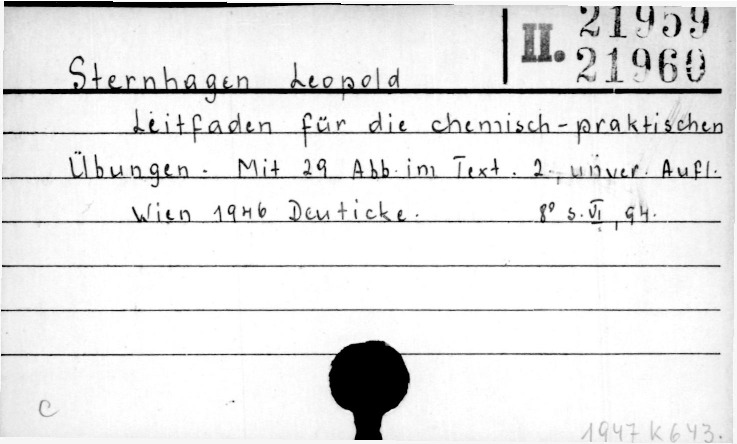 II. 21959
21960
Sternhagen Leopold
Leitfaden für die chemisch-praktischen
Übungen. Mit 29 Abb. im Text. 2., unver. Aufl.
Wien 1946 Deuticke. 8° S. VI, 94.
C
1947 K 643.